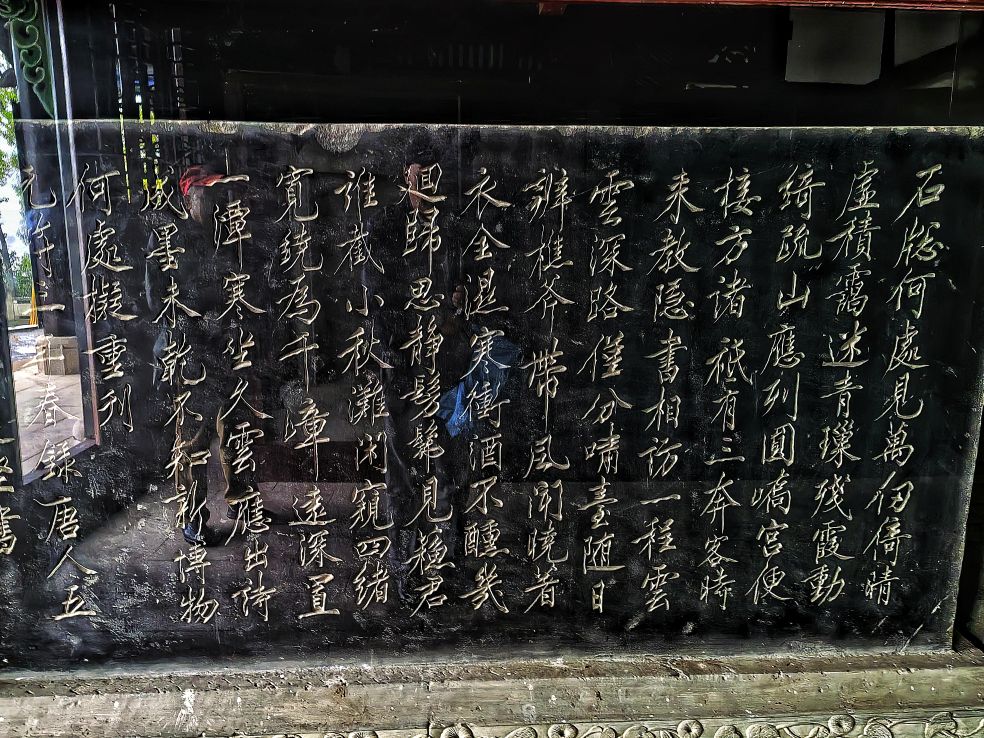 石牕何處見萬仞倚晴
虛積靄迷青璅殘霞動
綺疏山應列圓嶠宮便
接方諸祗有三奔客時
來教隐書相訪一程雲
雲深路僅分嘯臺随日
辨樵斧帶風聞曉著
衣全濕寒衝酒不醺幾
迴歸思静髣髴見蘓君
谁截小秋灘閑窺四緒
寬繞為千嶂遠深置
一潭寒坐久雲應出詩
成墨未乾不知新博物
何處擬重刊
春録唐人五
書